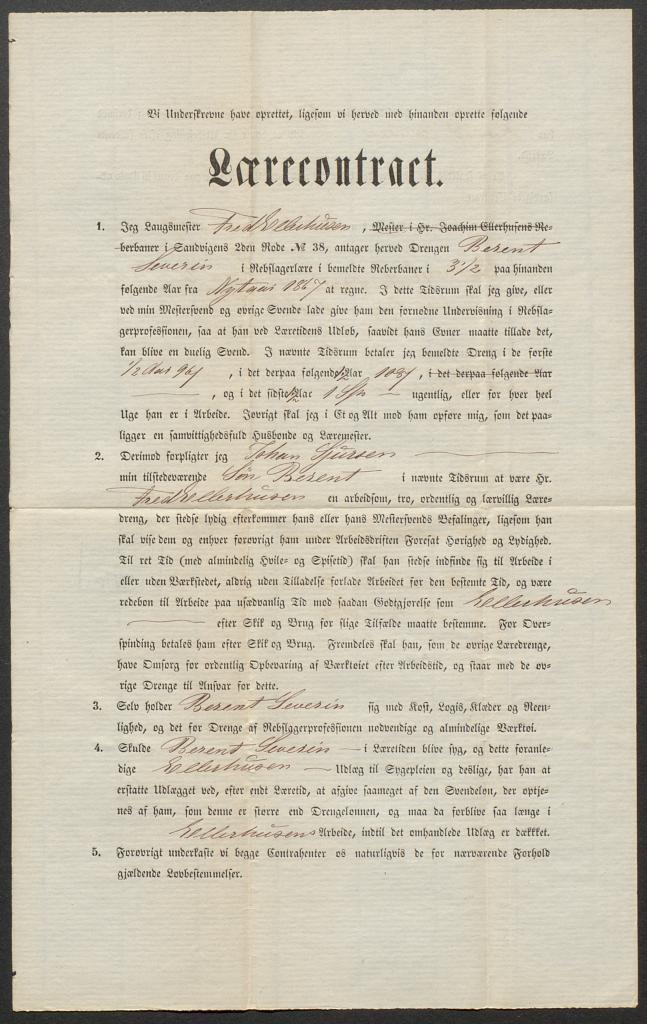 Vi Underskrevne have oprettet, ligesom vi herved med hinanden oprette følgende
Lærecontract.
1. Jeg Laugsmester Fred Ellerhusen, Mester i Hr. Joachim Ellerhusens Re-
berbaner i Sandvigens 2den Rode № 38, antager herved Drengen Berent
Severin i Rebslagerlære i bemeldte Reberbaner i 3 1/2 paa hinanden
følgende Aar fra Nytaar 1867 at regne. I dette Tidsrum skal jeg give, eller
ved min Mestersvend og øvrige Svende lade give ham den fornødne Undervisning i Rebsla-
gerprofessionen, saa at han ved Læretidens Udløb, saavidt hans Evner maatte tillade det,
kan blive en duelig Svend. I nævnte Tidsrum betaler jeg bemeldte Dreng i de første
1/2 Aar 96/, i det derpaa følgende 1/2 Aar 108/, i det derpaa følgende Aar
, og i det sidste 1/2 Aar 1 Sp ugentlig, eller for hver heel
Uge han er i Arbeide. Iøvrigt skal jeg i Et og Alt mod ham opføre mig, som det paa-
ligger en samvittighedsfuld Husbonde og Læremester.
2. Derimod forpligter jeg Johan Sjursen
min tilstedeværende Søn Berent i nævnte Tidsrum at være Hr.
Fred Ellerhusen en arbeidsom, tro, ordentlig og lærvillig Lære-
dreng, der stedse lydig efterkommer hans eller hans Mestersvends Befalinger, ligesom han
skal vise dem og enhver forøvrigt ham under Arbeidsdriften Foresat Hørighed og Lydighed.
Til ret Tid (med almindelig Hvile- og Spisetid) skal han stedse indfinde sig til Arbeide i
eller uden Værkstedet, aldrig uden Tilladelse forlade Arbeidet før den bestemte Tid, og være
redebon til Arbeide paa usædvanlig Tid mod saadan Godtgjørelse som Ellerhusen
efter Skik og Brug for slige Tilfælde maatte bestemme. For Over-
spinding betales ham efter Skik og Brug. Fremdeles skal han, som de øvrige Læredrenge,
have Omsorg for ordentlig Opbevaring af Værktøiet efter Arbeidstid, og staar med de øv-
rige Drenge til Ansvar for dette.
3. Selv holder Berent Severin sig med Kost, Logis, Klæder og Reen-
lighed, og det for Drenge af Rebslagerprofessionen nødvendige og almindelige Værktøi.
4. Skulde Berent Severin i Læretiden blive syg, og dette foranle-
dige Ellerhusen Udlæg til Sygepleien og deslige, har han at
erstatte Udlægget ved, efter endt Læretid, at afgive saameget af den Svendeløn, der optje-
nes af ham, som denne er større end Drengelønnen, og maa da forblive saa længe i
Ellerhusens Arbeide, indtil det omhandlede Udlæg er dækket.
5. Forøvrigt underkaste vi begge Contrahenter os naturligvis de for nærværende Forhold
gjældende Lovbestemmelser.